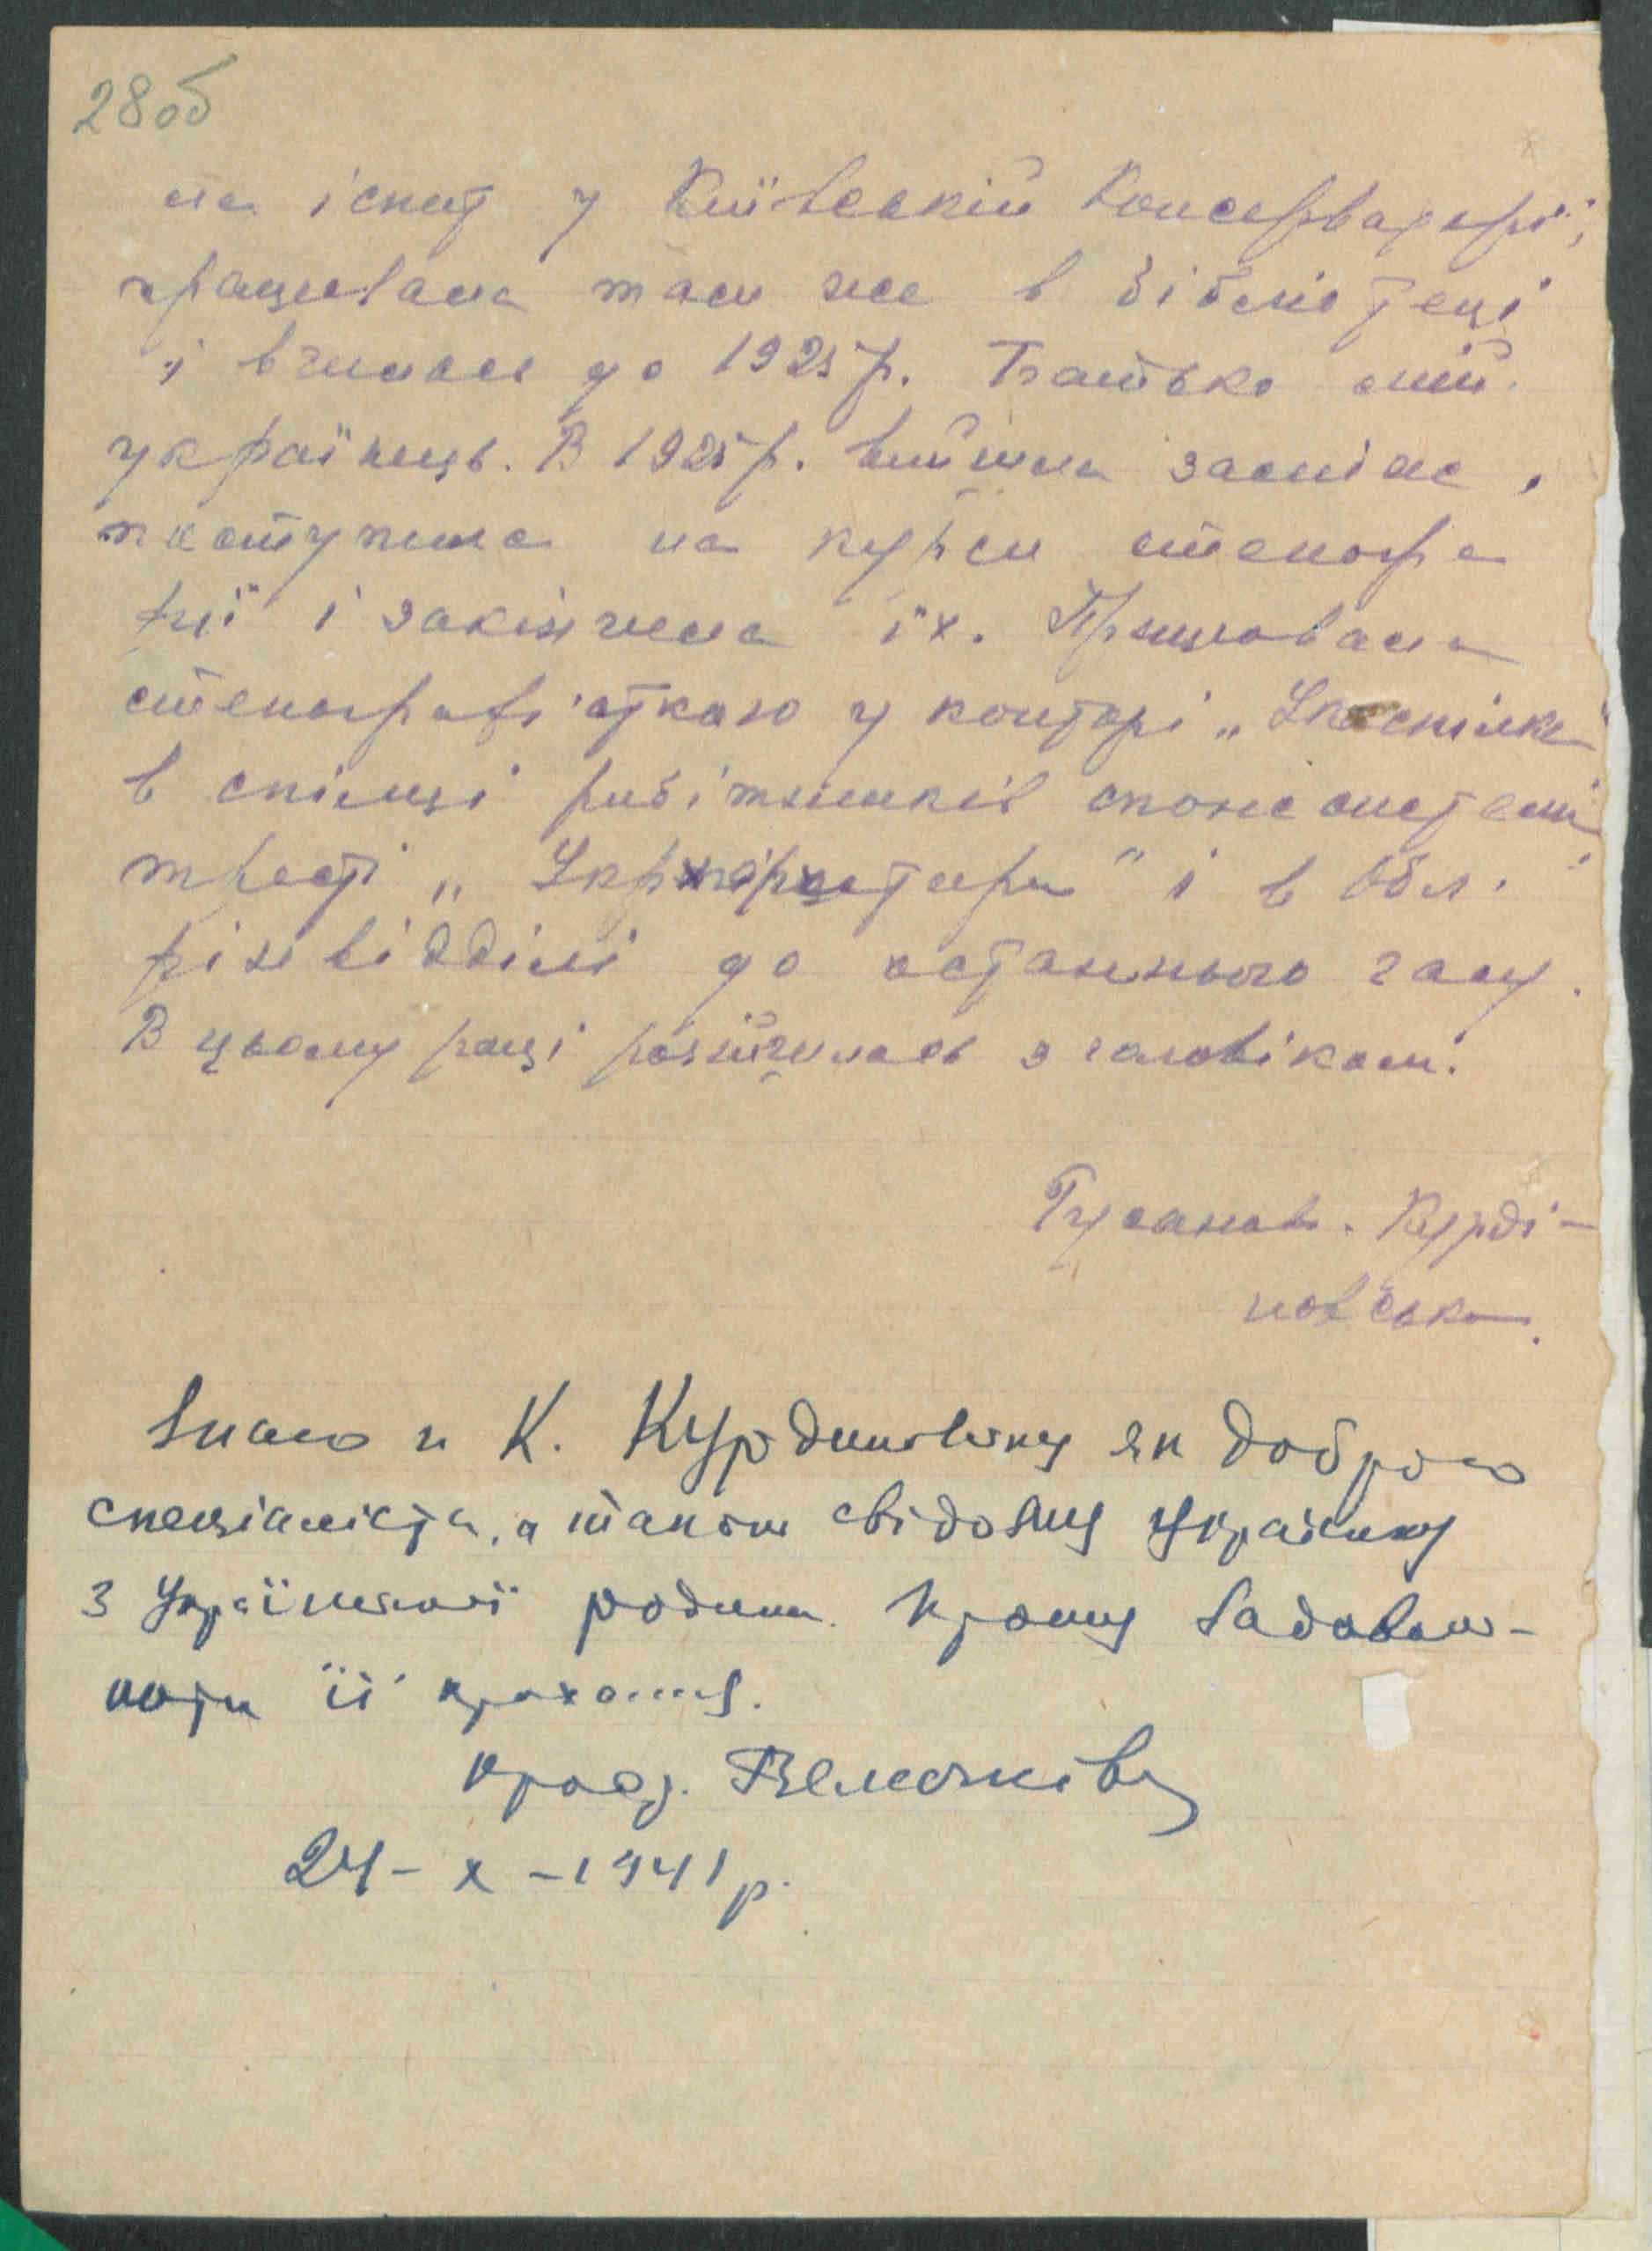 28об
на іспит у Київській Консерваторії,
працювала там же в бібліотеці
і вчилась до 1925 р. Батько мій
українець. В 1925 р. вийшла заміж,
поступила на курси стеногра
фії і закінчила їх. Працювала
стенографісткою у конторі „
в спілці робітників
тресті „ " і в Обл.
фінвідділі до останнього часу.
В цьому році розійшлась з чоловіком.
Курді-
новська.
Знаю п К. Курдиновську як доброго
спеціаліста, а також свідому Українку
з Української родини. Прошу задоволь-
нити її прохання.
проф.
24-X-1941 р.